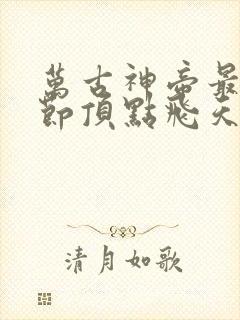 萬古神帝最
節頂點飛天
清月如歌